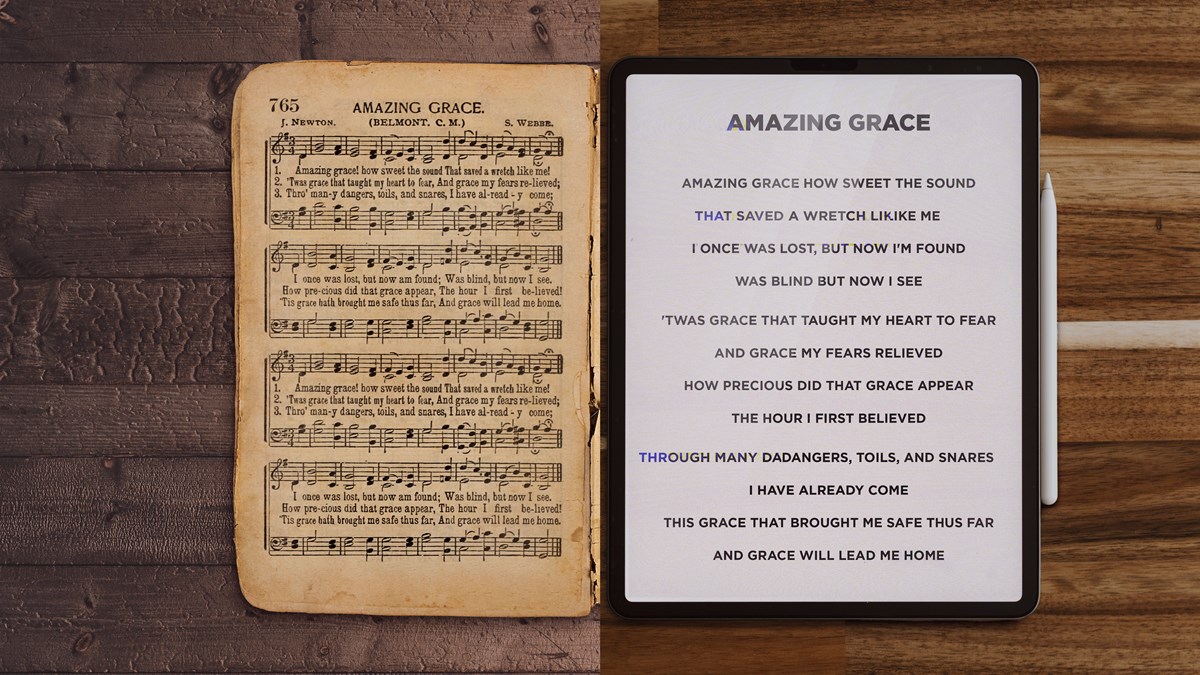 765
AMAZING GRACE.
J. NEWTON. (BELMONT. C. M.) S. WEBBE.
1. Amazing grace! how sweet the sound That saved a wretch like me!
2. 'Twas grace that taught my heart to fear, And grace my fears re-lieved;
3. Thro' man-y dangers, toils, and snares, I have al-read - y come;
I once was lost, but now am found; Was blind, but now I see.
How pre-cious did that grace appear, The hour I first be-lieved!
'Tis grace hath brought me safe thus far, And grace will lead me home.
1. Amazing grace! how sweet the sound That saved a wretch like me!
2. 'Twas grace that taught my heart to fear, And grace my fears re-lieved;
3. Thro' man-y dangers, toils, and snares, I have al-read - y come;
I once was lost, but now am found; Was blind, but now I see.
How pre-cious did that grace appear, The hour I first be-lieved!
'Tis grace hath brought me safe thus far, And grace will lead me home.
AMAZING GRACE
AMAZING GRACE HOW SWEET THE SOUND
THAT SAVED A WRETCH LIKIKE ME
I ONCE WAS LOST, BUT NOW I'M FOUND
WAS BLIND BUT NOW I SEE
'TWAS GRACE THAT TAUGHT MY HEART TO FEAR
AND GRACE MY FEARS RELIEVED
HOW PRECIOUS DID THAT GRACE APPEAR
THE HOUR I FIRST BELIEVED
THROUGH MANY DADANGERS, TOILS, AND SNARES
I HAVE ALREADY COME
THIS GRACE THAT BROUGHT ME SAFE THUS FAR
AND GRACE WILL LEAD ME HOME